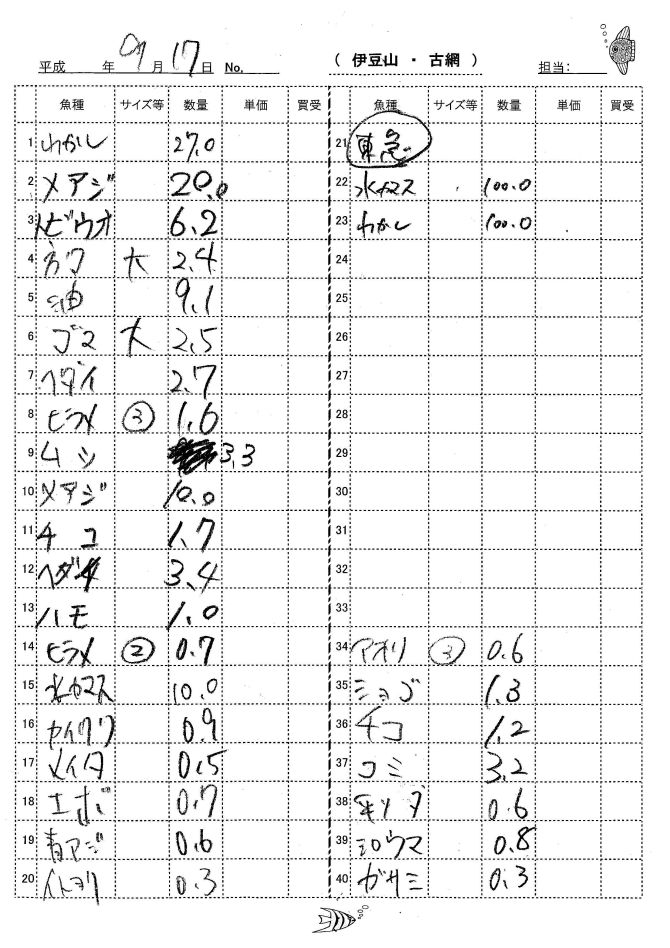 平成 年 09 月 17 日 No. ( 伊豆山 ・ 古網 ) 担当:
魚種 サイズ等 数量 単価 買受
1 わかし 27.0
2 メアジ 20.0
3 トビウオ 6.2
4 大 2.4
5 油 9.1
6 ゴマ 大 2.5
7 ヘダイ 2.7
8 ヒラメ ③ 1.6
9 ムツ 3.3
10 メアジ 10.0
11 チコ 1.7
12 ヘダイ 3.4
13 ハモ 1.0
14 ヒラメ ② 0.7
15 水カマス 10.0
16 0.9
17 メイタ 0.5
18 エボ 0.7
19 青アジ 0.6
20 イトヨリ 0.3
魚種 サイズ等 数量 単価 買受
21 東急
22 水カマス 100.0
23 わかし 100.0
24
25
26
27
28
29
30
31
32
33
34 アオリ ③ 0.6
35 ショゴ 1.3
36 チコ 1.2
37 コミ 3.2
38 0.6
39 シロウマ 0.8
40 ガサミ 0.3